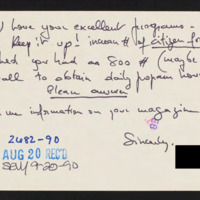 I love your excellent programs.
Keep it up! increase # of citizen
had you had an 800 # (maybe
call to obtain daily program
Please answer
me information on your magazine
Sincerely,
2682-90
AUG 20 REC'D
9-20-90